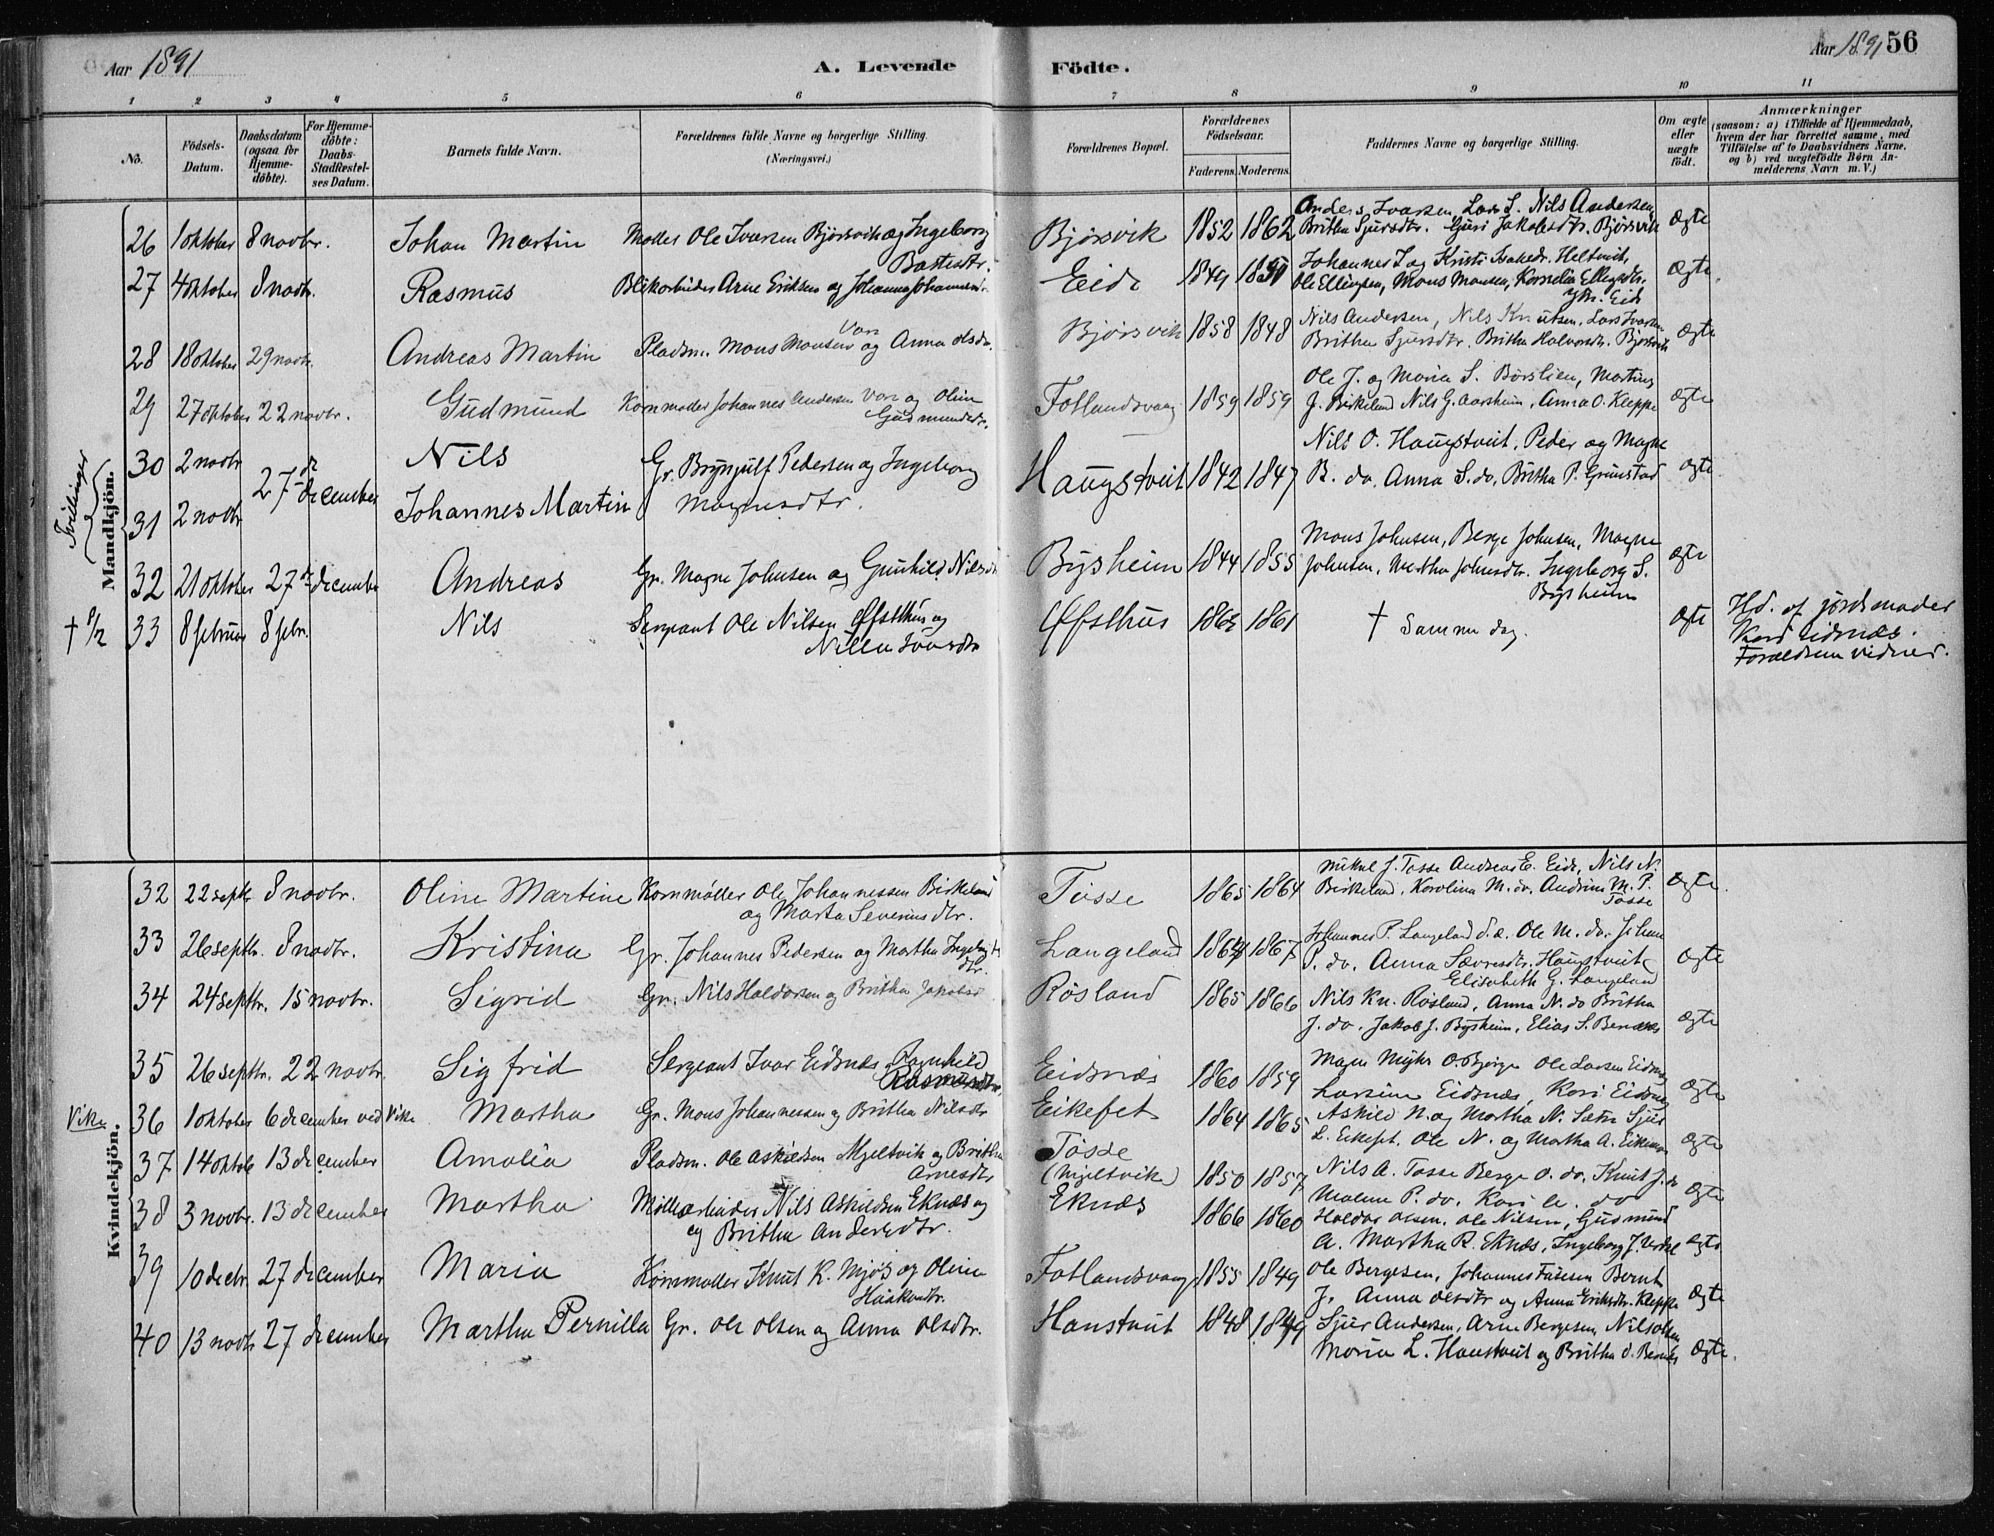 Aar 1891
A. Levende Födte.
Aar 1891 56
1 2 3 4 5 6 7 8 9 10 11
No. Födsels-Datum. Daabsdatum (ogsaa for Hjemme-döbte). For Hjemme-döbte: Daabs-Stadfæstel-ses Datum. Barnets fulde Navn. Forældrenes fulde Navne og borgerlige Stilling. (Næringsvei.) Forældrenes Bopæl. Forældrenes Födselsaar. Faderens. Moderens. Faddernes Navne og borgerlige Stilling. Om ægte eller uægte födt. Anmærkninger (saasom: a) i Tilfælde af Hjemmedaab, hvem der har forrettet samme, med Tilföielse af to Daabsvidners Navne, og b) ved uægtefödte Børn An-melderens Navn m. V.)
Mandkjön.
26 1 oktober 8 novbr. Johan Martin Møller Ole Ivarsen Bjørsvik og Ingeborg Bjørsvik 1852 1862 Anders Ivarsen, Lars S. Nils Andersen ægte
Britha Sjursdtr. Guri Jakobsdtr. Bjørsvik
27 4 oktober 8 novbr. Rasmus Blikarbeider Arne Eriksen og Johanna Eide 1849 Johannes I og Kristi ægte
Ole Ellingsen, Mons Monsen, Kornelia
Eide
28 18 oktober 29 novbr. Andreas Martin Pladsm. Mons Monsen og Anna Olsdtr. Bjørsvik 1858 1848 Nils Andersen, Nils Knutsen, Lars Ivarsen ægte
Britha Sjursdtr. Britha Halvorsdtr. Bjørsvik
29 27 oktober 22 novbr. Gudmund Kornmøller Johannes Andersen og Oline Gudmundsdtr. Fotlandsvaag 1859 1859 Ole J. og Maria S. Børslien, Martins ægte
J. Birkeland Nils G. Aarsheim, Anna O. Kleppe
Tvillinger
30 2 novbr 27de december Nils Gr. Brynjulf Pedersen og Ingeborg Magnesdtr. Haugstveit 1842 1847 Nils O. Haugstveit, Peder og Magne ægte
B. do, Anna S. do, Britha P. Grimstad
31 2 novbr Johannes Martin
32 21 oktober 27de december Andreas Gr. Magne Johnsen og Gunhild Nilsdtr Bysheim 1844 1855 Mons Johnsen, Berge Johnsen, Magne ægte
Johnsen, Martha Johnsdtr. Ingeborg S.
Bysheim
† 8/2 33 8 februar 8 febr. Nils Sergeant Ole Nilsen Øfsthus og Øfsthus 1861 † Samme dag. ægte Hd. af jordemoder
Kari Eidsnæs.
Forældrene vidner.
Kvindekjön.
32 22 septbr 8 novbr. Oline Martine Kornmøller Ole Johannessen Birkeland og Marta Severinsdtr. Tosse 1865 1864 Mikal J. Tosse Andreas E. Eide, Nils N. ægte.
Birkeland, Karolina M. do, M. P.
Tosse
33 26 septbr. 8 novbr. Kristina Gr. Johannes Pedersen og Martha Langeland 1867 Johannes P. Langeland Ole M. do. Johan ægte
P. do. Anna Haugstveit
Elisabeth G. Langeland
34 24 septbr. 15 novbr. Sigrid Gr. Nils Haldorsen og Britha Jakobsd Røsland 1865 1866 Nils Kn. Røsland, Anna N. do Britha ægte
J. do. Jakob J. Bysheim, Elias S. Bernæs
35 26 septbr. 22 novbr. Sigfrid Sergeant Ivar Eidsnæs, Ragnhild Rasmusdtr. Eidsnæs 1860 1859 Ole Larsen Eidsnæs ægte
Eidsnæs, Kari Eidsnæs
Vike 36 1 oktober 6 december ved Vike Martha Gr. Mons Johannessen og Britha Nilsdtr Eikefet 1864 1865 Askild N. og Martha N. Sætre Sjur ægte
L. Eikefet, Ole N. og Martha A.
37 14 oktob 13 december Amalia Pladsm. Ole Askildsen Mjeltvik og Britha Arnesdtr Tosse (Mjeltvik) 1850 1857 Nils A. Tosse Berge O. do, Knut J. do ægte
Malene P. do, Kari A. do
38 3 novbr. 13 december Martha Møllearbeider Nils Askildsen Eknæs og og Britha Andersdtr. Eknæs 1866 1860 Haldor Olsen, Ole Nilsen, Gudmund ægte
A. Martha R. Eknæs, Ingeborg J.
39 10 decbr. 27 december Maria Kornmøller Knut K. Mjøs og Oline Haakondtr. Fotlandsvaag 1855 1849 Ole Bergesen, Johannes Bernt ægte
J. Anna Olsdtr og Anna Eriksdtr. Kleppe
40 13 novbr 27 december Martha Pernilla Gr. Ole Olsen og Anna Olsdtr. Hanstveit 1848 1849 Sjur Andersen, Arne Bergesen, Nils Olsen ægte.
Maria L. Hanstveit og Britha O. Bernæs